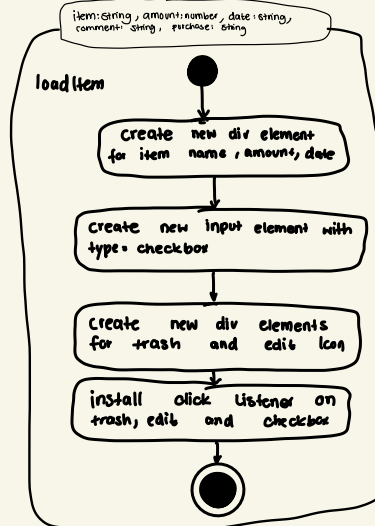 item:string, amount:number, date:string,
comment: string, purchase: string
loadItem
Create new div element
for item name, amount, date
Create new input element with
type= checkbox
Create new div elements
for trash and edit Icon
install click Listener on
trash, edit and checkbox